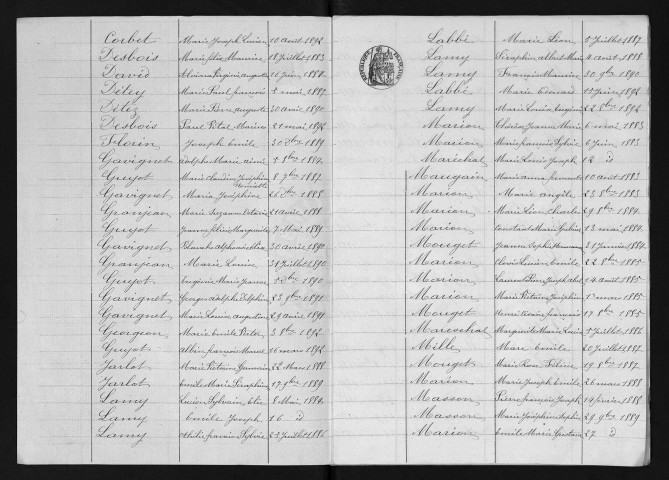 Corbet Marie Joseph Lucien 10 août 1892
Desbois Marie félix Maurice 18 Juillet 1883
David 16 Juin 1888
Détey Marie Paul françois 5 mai 1889
Détez Marie Pierre auguste 30 avril 1890
Desbois Paul Vital Marius 21 mai 1892
Florin Joseph émile 30 8bre 1889
Gavignet adolphe Marie aimé 1884
Guyot Marie claudine Joséphine 8 9bre 1887
Henriette
Gavignet Maria Joséphine 26 8bre 1888
Granjean Marie Suzanne 21 avril 1888
Guyot Jeanne félicie Marguerite 7 Mai 1889
Gavignet Blanche alphonsine 30 avril 1890
Granjean Marie Louise 31 Juillet 1890
Guyot Eugénie Marie Jeanne 1890
Gavignet Georges adolphe Delphin 23 9bre 1891
Gavignet Marie Louis augustin 29 avril 1891
Georgeon Marie émile Victor 3 8bre 1892
Guyot albin françois Marcel 16 mars 1892
Jarlot Marie Victoire Germaine 22 Mars 1888
Jarlot émile Marie Séraphin 17 9bre 1889
Lamy Lucien Sylvain 8 Mai 1884
Lamy émile Joseph 16 d
Lamy françois Sylvie 23 Juillet 1886
Labbé Marie Léon 5 Juillet 1887
Lamy Séraphin albert Marie 3 août 1888
Lamy François Maurice 30 9bre 1890
Labbé Marie Edouard 15 Juin 1892
Lamy Marie Louise Eugénie 22 8bre 1892
Marion Clovis Jeanne Marie 6 mai 1883
Marion Marie françois Sylvie 6 Juin 1883
Maréchal Marie Louis Joseph 12 d
Maugain Marie anna fernande 10 août 1883
Marion Marie angèle 23 8bre 1883
Marion Marie Léon Charles 29 8bre 1884
Marion Constant Marie 13 mai 1884
Mouget Jeanne Sophie 31 Janvier 1884
Marion Clovis Lucien émile 22 8bre 1885
Marion Laurent Pierre Joseph 14 août 1885
Marion Marie Victoire Joséphine 1er mars 1885
Mouget Henri Marie françois 17 8bre 1885
Maréchal Marguerite Marie Louise 5 Juillet 1886
Mille Marc émile 20 Juillet 1887
Mouget Marie Rose Céline 19 8bre 1887
Marion Marie Joseph émile 26 mars 1888
Masson Pierre françois Joseph 14 février 1888
Masson Marie Joséphine Sophie 29 9bre 1889
Marion émile Marie Gustave 27 d